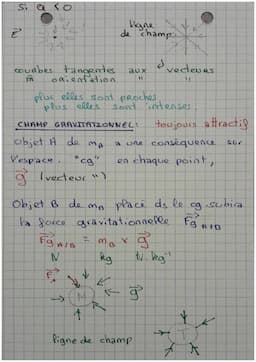 Si q < 0
ligne
de champ
E
courbes tangentes aux vecteurs
m̂ orientation " "
plus elles sont proches
plus elles sont intenses
CHAMP GRAVITATIONNEL : toujours attractif
Objet A de mA a une conséquence sur
l'espace. "cg" en chaque point,
g (vecteur ")
Objet B de mB placé ds le cg subira
la force gravitationnelle Fg A/B
Fg A/B = mB x g
N kg N.kg⁻¹
F
M
g
T
ligne de champ